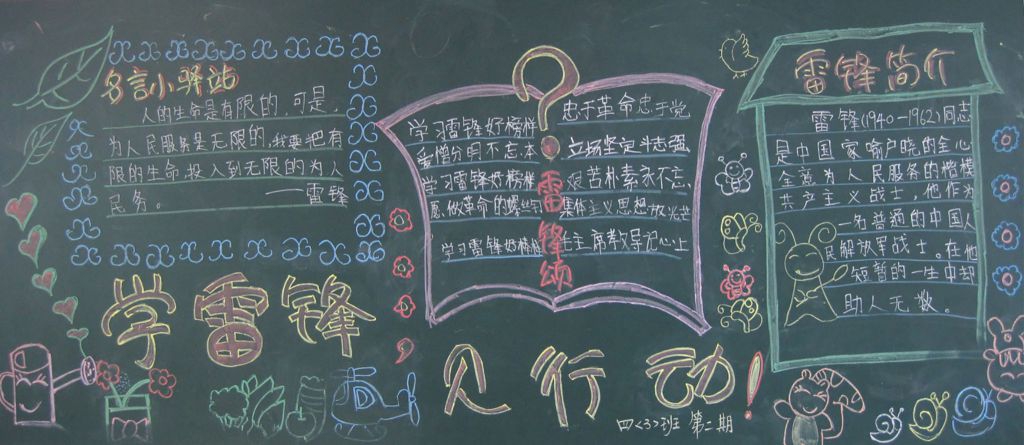 名言小驿站
人的生命是有限的,可是,
为人民服务是无限的,我要把有
限的生命,投入到无限的为人
民务。
——雷锋
学雷锋
?雷锋颂
学习雷锋好榜样 忠于革命忠于党
爱憎分明不忘本 立场坚定斗志强
学习雷锋好榜样 艰苦朴素永不忘
愿做革命的螺丝钉 集体主义思想放光芒
学习雷锋好榜样 毛主席教导记心上
见行动!
四<3>班 第二期
雷锋简介
雷锋(1940-1962)同志
是中国家喻户晓的全心
全意为人民服务的楷模
共产主义战士,他作为
一名普通的中国人
民解放军战士。在他
短暂的一生中却
助人无数。